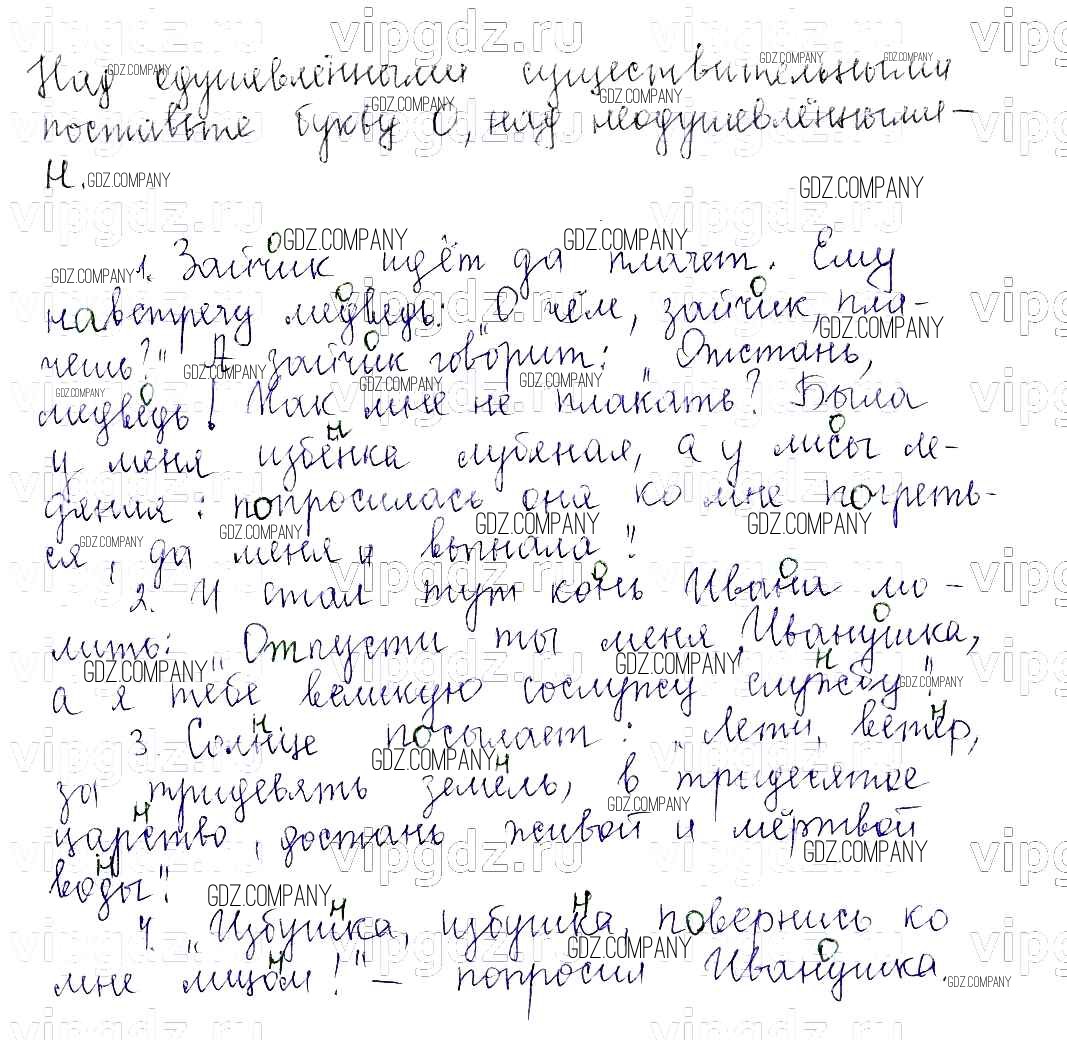 Над одушевлёнными существительными
поставьте букву О, над неодушевлёнными –
Н.
1. Зайчик идёт да плачет. Ему
навстречу медведь: "О чём, зайчик, пла-
чешь?" А зайчик говорит: "Отстань,
медведь! Как мне не плакать? Была
у меня избёнка лубяная, а у лисы ле-
дяная: попросилась она ко мне погреть-
ся, да меня и выгнала".
2. И стал тут конь Ивана мо-
лить: "Отпусти ты меня, Иванушка,
а я тебе великую сослужу службу".
3. Солнце посылает: "Лети, ветер,
за тридевять земель, в тридесятое
царство, достань живой и мёртвой
воды".
4. "Избушка, избушка, повернись ко
мне лицом!" – попросил Иванушка.
vipgdz.ru
GDZ.COMPANY